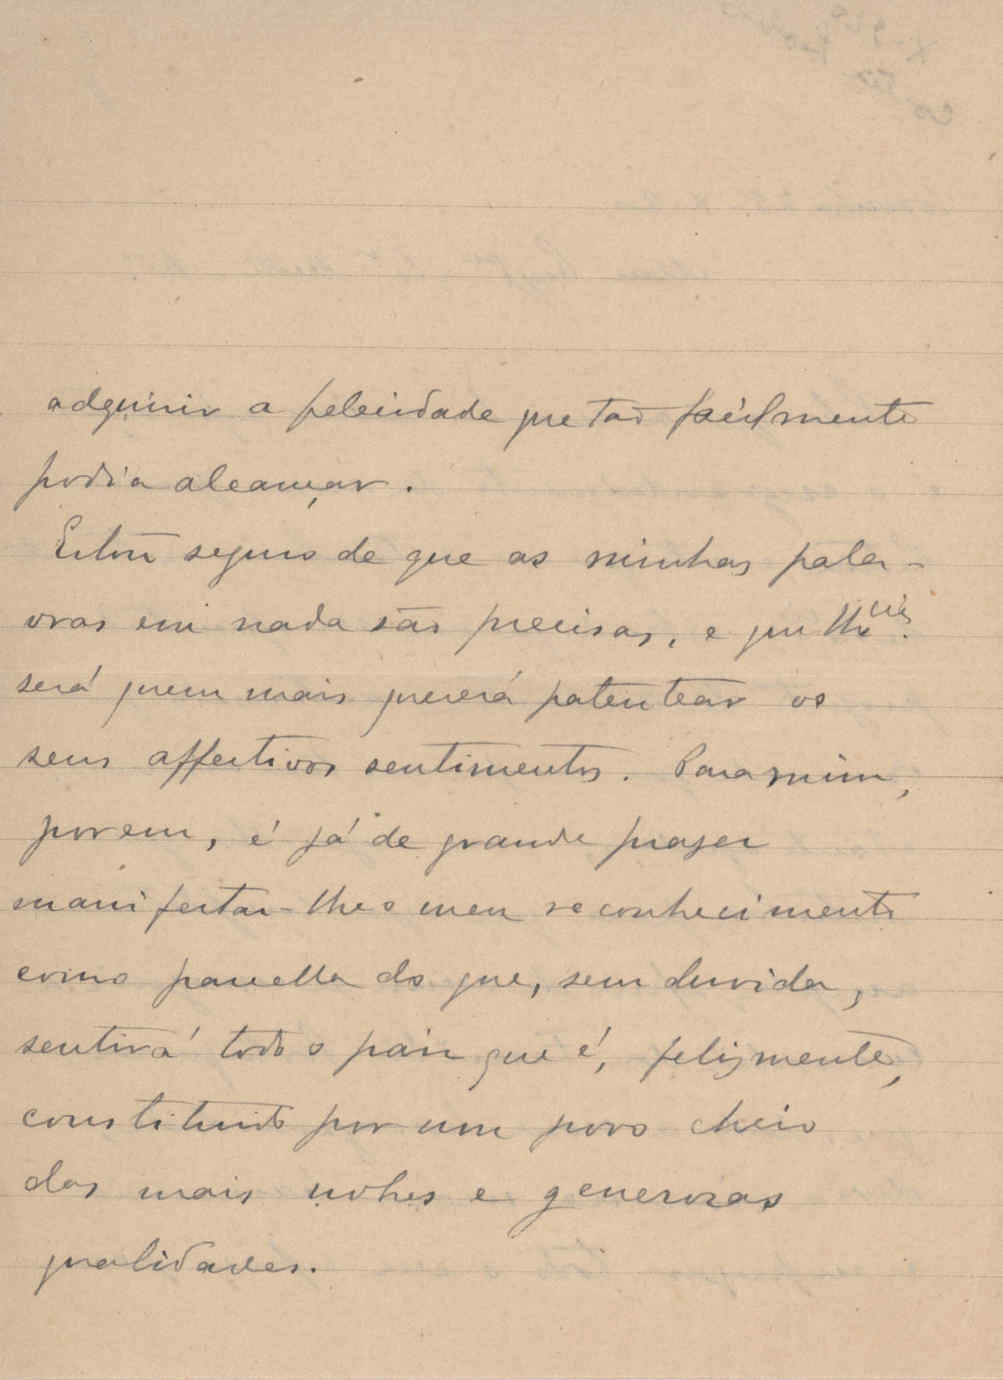 adquirir a felicidade que tão fácilmente
podia alcançar.
Estou seguro de que as minhas pala-
vras em nada são precisas, e que
será quem mais quererá patentear os
seus affectivos sentimentos. Para mim,
porem, é já de grande prazer
manifestar-lhe o meu reconhecimento
como parcella do que, sem duvida,
sentirá todo o paiz que é, felizmente,
constituido por um povo cheio
das mais nobres e generosas
qualidades.